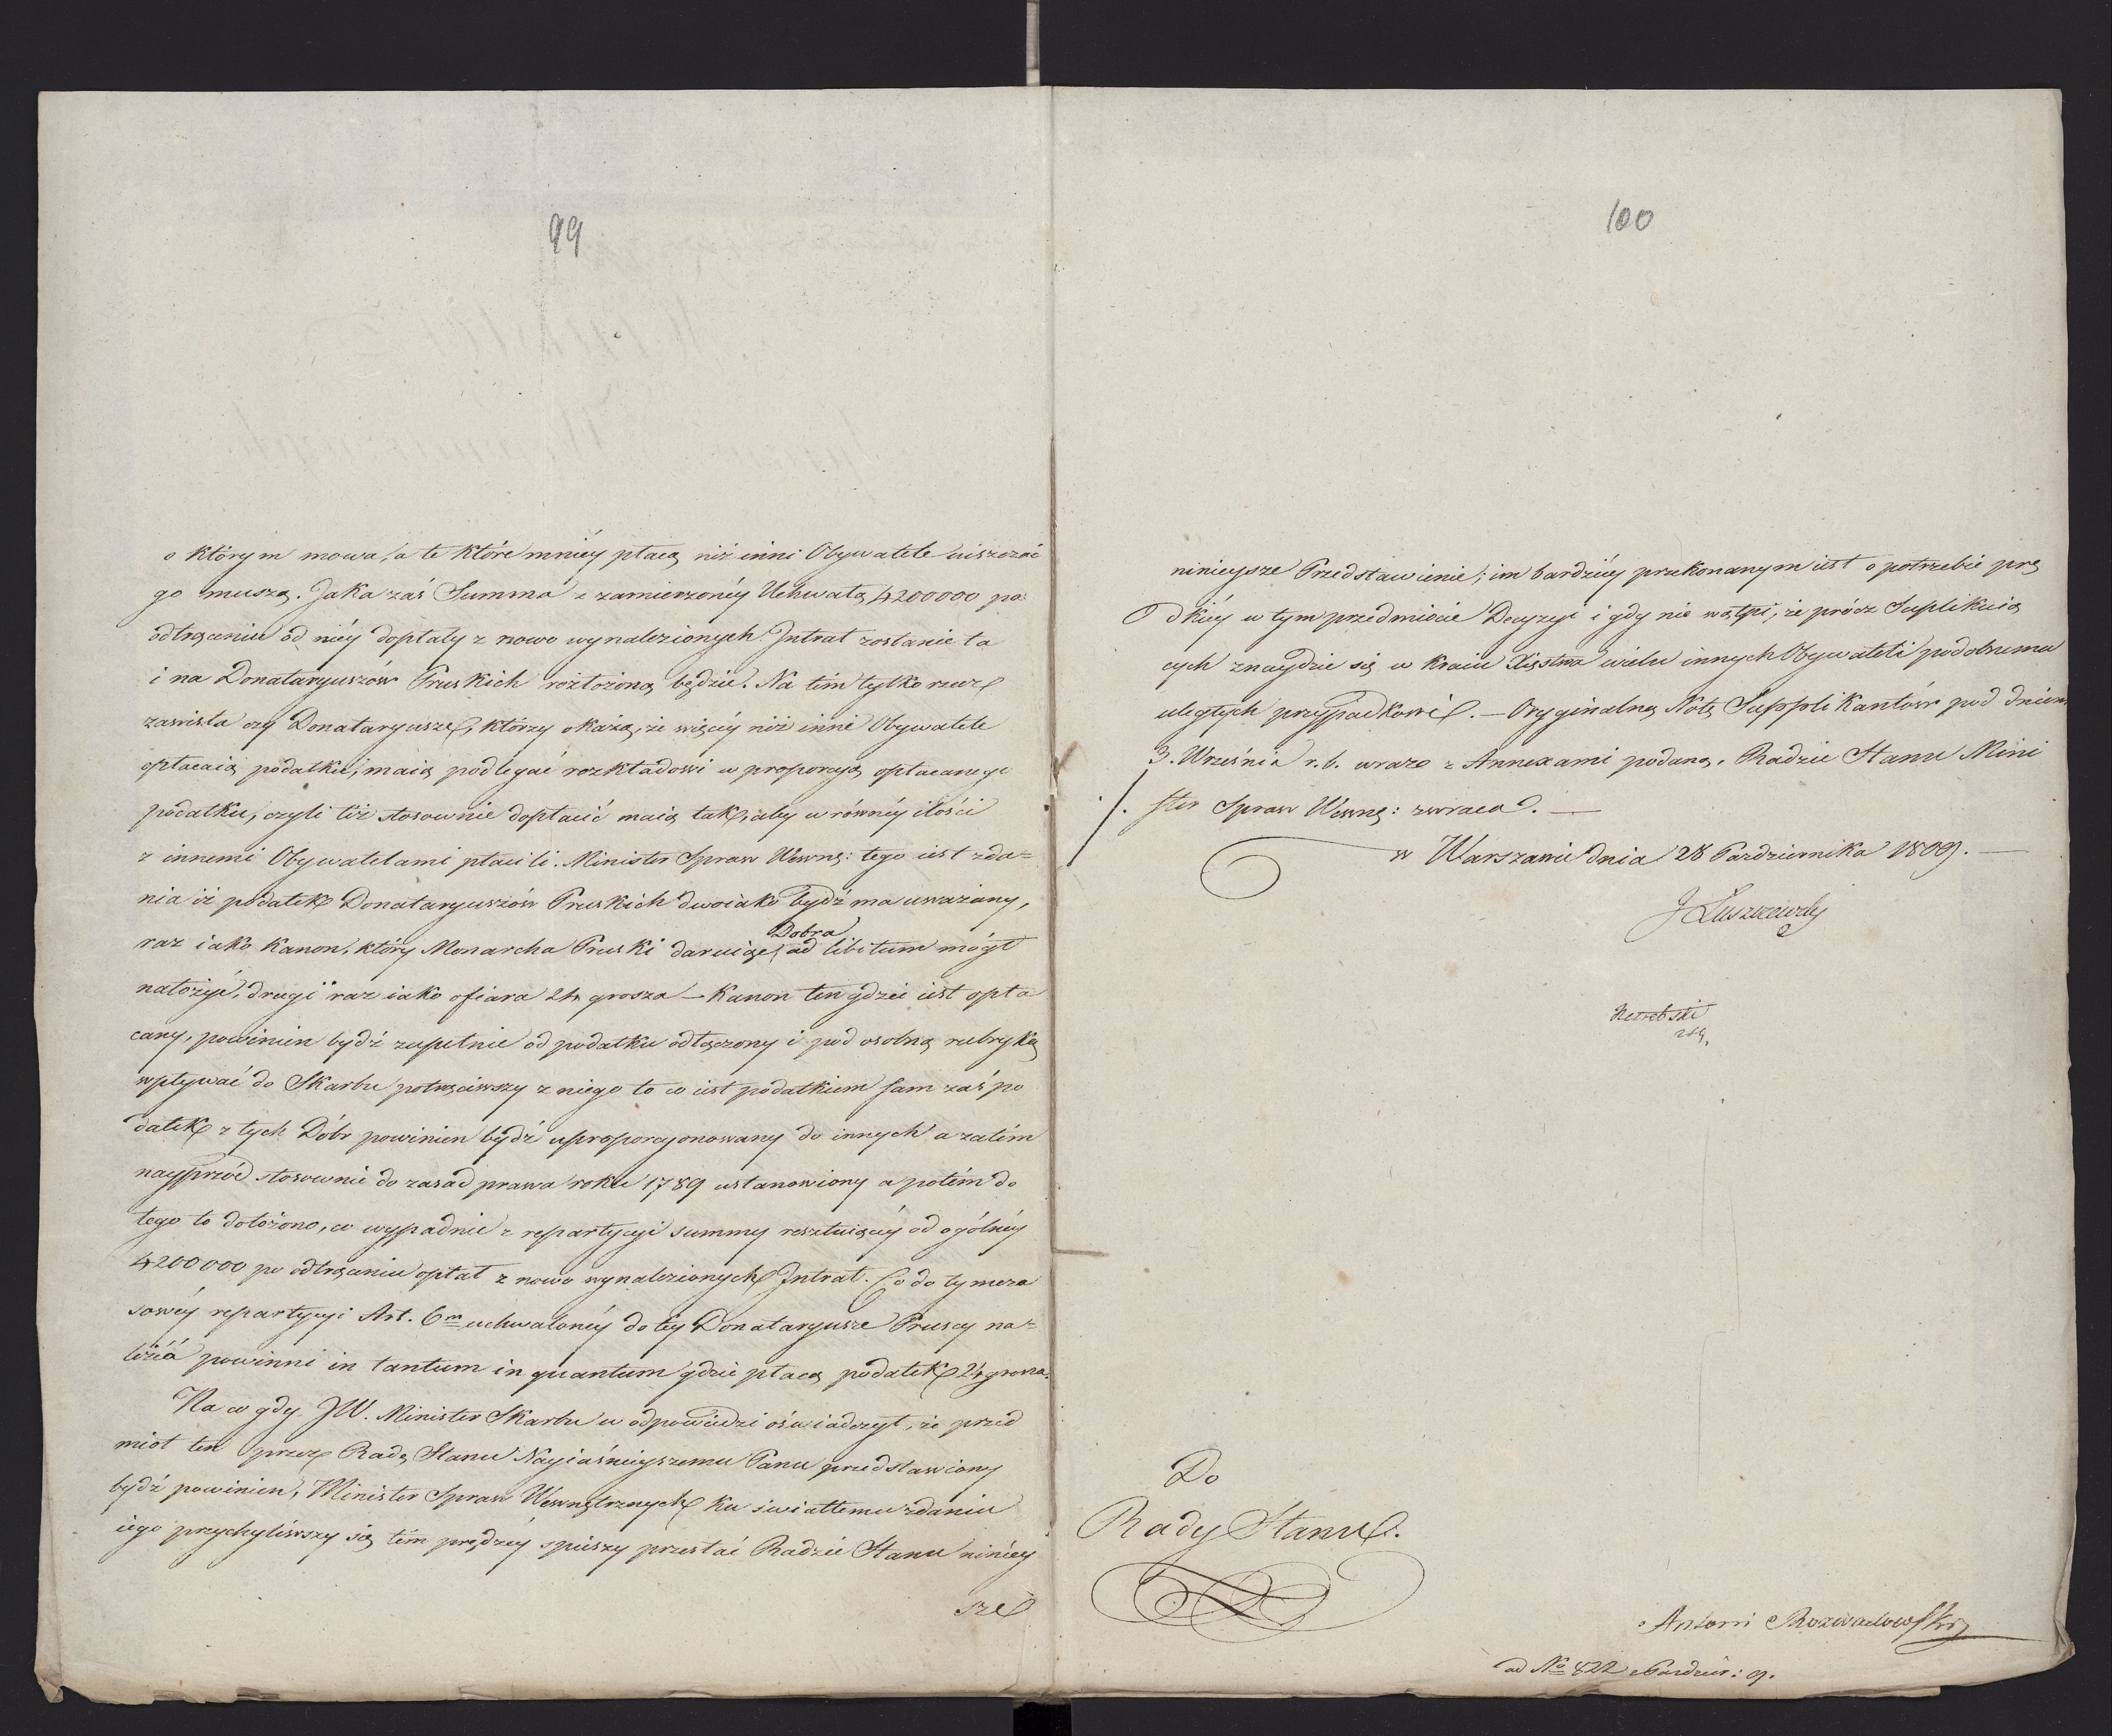 99
o którym mowa, a te które mniéy płacą niż inni Obywatele uiszczać
go muszą. Jaka zaś Summa z zamierzonéy Uchwałą 4200000 po
odtrąceniu od niéy dopłaty z nowo wynalezionych Intrat zostanie ta
i na Donataryuszów Pruskich rozłożoną będzie. Na tém tylko rzecz
zawisła czy Donataryusze, którzy okażą, że więcéy niż inni Obywatele
opłacaią podatku, maią podlegać rozkładowi w proporcyą opłacanego
podatku, czyli téż stosownie dopłacić maią tak, aby w równéy ilości
z innemi Obywatelami płacili. Minister Spraw Wewnę: tego iest zda=
nia iż podatek Donataryuszów Pruskich dwoiako bydź ma uważany,
raz iako Kanon, który Monarcha Pruski daruiąc Dobra ad libitum mógł
nałożyć, drugi raz iako ofiara 24 grosza — Kanon ten gdzie iest opła
cany, powinien bydź zupełnie od podatku odłączony i pod osobną rubryką
wpływać do Skarbu potrąciwszy z niego to co iest podatkiem sam zaś po
datek z tych Dóbr powinien bydź uproporcyonowany do innych a zatém
nayprzód stosownie do zasad prawa roku 1789 ustanowiony a potém do
tego to dołożono, co wypadnie z repartycyi summy resztuiącéy od ogólnéy
4200000 po odtrąceniu opłat z nowo wynalezionych Intrat. Co do tymcza
sowéy repartycyi Art. 6m uchwalonéy do téy Donataryusze Pruscy na=
leżéć powinni in tantum in quantum gdzie płacą podatek 24 grosza.
Na co gdy JW. Minister Skarbu w odpowiedzi oświadczył, że przed
miot ten przez Radę Stanu Nayiaśnieyszemu Panu przedstawiony
bydź powinien, Minister Spraw Wewnętrznych ku światłemu zdaniu
iego przychyliwszy się tém prędzéy spieszy przesłać Radzie Stanu niniéy
sze
100
ninieysze Przedstawienie; im bardziéy przekonanym iest o potrzebie prę
dkiéy w tym przedmiocie Decyzyi i gdy nie wątpi, że prócz Suplikuią
cych znaydzie się w kraiu Xięstwa wielu innych Obywateli podobnemu
uległych przypadkowi. — Oryginalną Notę Supplikantów pod dniem
3. Września r. b. wraz z Annexami podaną, Radzie Stanu Mini
ster Spraw Wewnę: zwraca. —
w Warszawie dnia 28 Pazdziernika 1809. —
J Łuszczewsky
Do
Rady Stanu.
Antoni Rozwadowski
ad No 822 Pazdzier: 9.